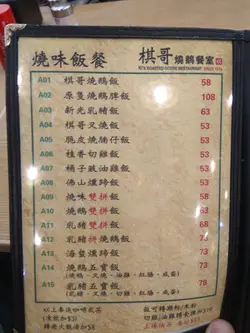 燒味飯餐
棋哥燒鵝餐室
KI'S ROASTED GOOSE RESTAURANT
A01 棋哥燒鵝飯 58
A02 原隻燒鵝髀飯 108
A03 新先乳豬飯 63
A04 棋哥叉燒飯 53
A05 脆皮燒腩仔飯 53
A06 桂香切雞飯 53
A07 桶子豉油雞飯 53
A08 佛山燻蹄飯 53
A09 燒味雙拼飯 58
A10 燒鵝雙拼飯 63
A11 乳豬雙拼飯 68
A12 乳豬拼燒鵝飯 73
A13 海蜇燻蹄飯 73
A14 燒鵝五寶飯 73
A15 乳豬五寶飯 78
以上奉送咖啡或茶
飯可轉瀨粉/米粉